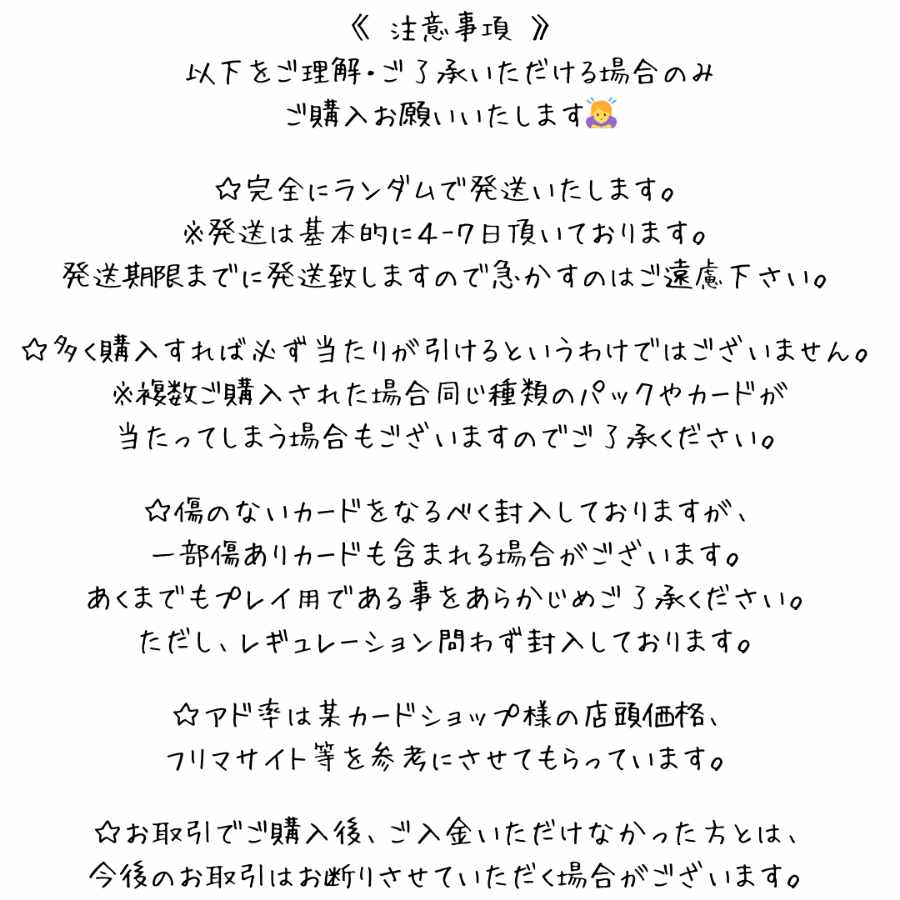 《 注意事項 》
以下をご理解・ご了承いただける場合のみ
ご購入お願いいたします🙇
☆完全にランダムで発送いたします。
※発送は基本的に4-7日頂いております。
発送期限までに発送致しますので急かすのはご遠慮下さい。
☆多く購入すれば必ず当たりが引けるというわけではございません。
※複数ご購入された場合同じ種類のパックやカードが
当たってしまう場合もございますのでご了承ください。
☆傷のないカードをなるべく封入しておりますが、
一部傷ありカードも含まれる場合がございます。
あくまでもプレイ用である事をあらかじめご了承ください。
ただし、レギュレーション問わず封入しております。
☆アド率は某カードショップ様の店頭価格、
フリマサイト等を参考にさせてもらっています。
☆お取引でご購入後、ご入金いただけなかった方とは、
今後のお取引はお断りさせていただく場合がございます。